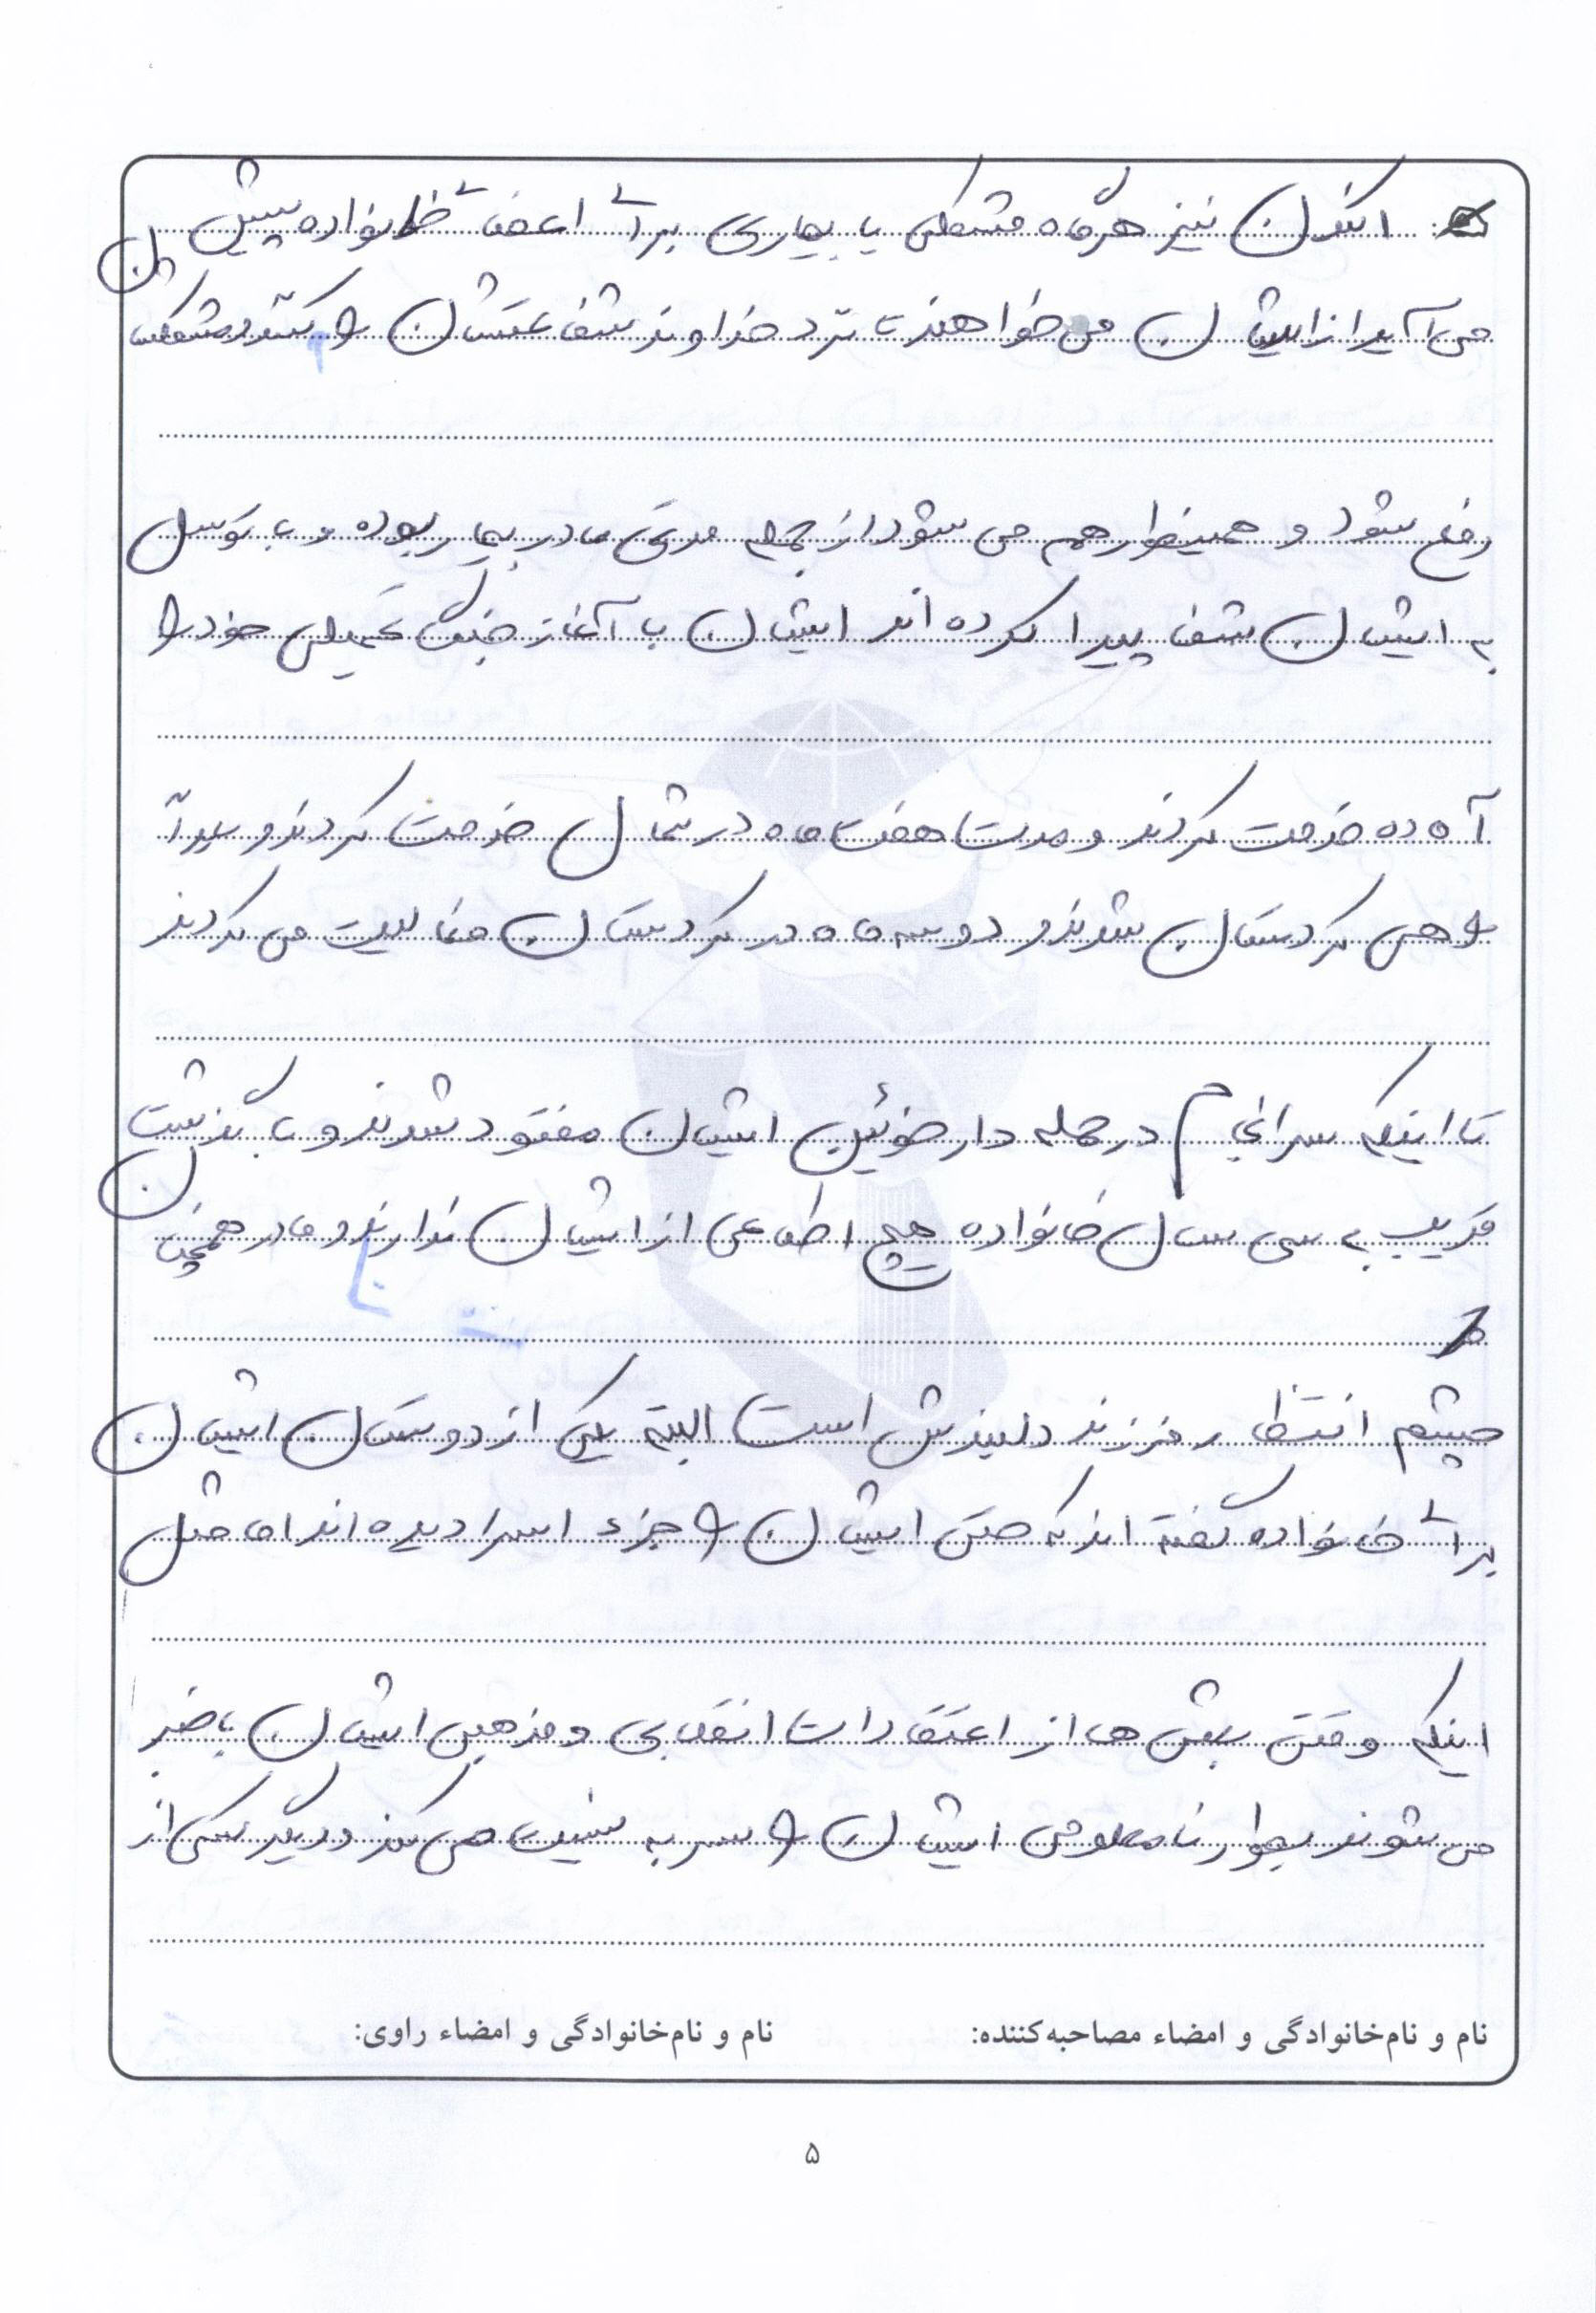 اکنون نیز هرگاه مشکلی یا بیماری برای اعضای خانواده پیش
می آید از ایشان می خواهند تا نزد خداوند شفاعتشان را بکنند و مشکلشان
رفع شود و همینطور هم می شود از جمله مدتی مادر بیمار بوده و با توسل
به ایشان شفا پیدا کرده اند ایشان با آغاز جنگ تحمیلی خود را
آماده خدمت کردند و مدت هفت ماه در شمال خدمت کردند و بعداً
راهی کردستان شدند و دو سه ماه در کردستان فعالیت می کردند
تا اینکه سرانجام در حمله دارخوئین ایشان مفقود شدند و با گذشت
قریب به سی سال خانواده هیچ اطلاعی از ایشان ندارند و مادر همچنان
چشم انتظار فرزند دلبندش است البته یکی از دوستان ایشان
برای خانواده گفته اند که حتی ایشان را جزء اسرا دیده اند اما مثل
اینکه وقتی بعثی ها از اعتقادات انقلابی و مذهبی ایشان با خبر
می شوند بطور نامعلومی ایشان را سر به نیست می کنند و دیگر کسی از
نام و نام‌خانوادگی و امضاء مصاحبه‌کننده: نام و نام‌خانوادگی و امضاء راوی:
۵